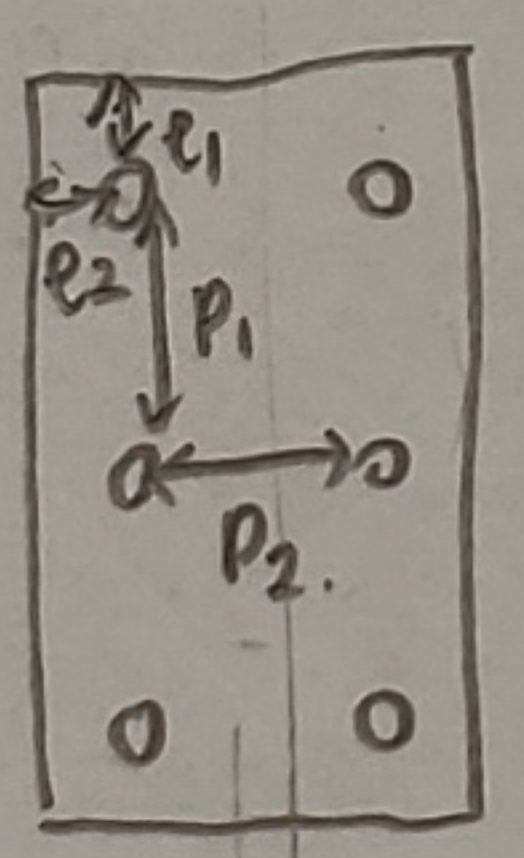 e1
e2
P1
P2.